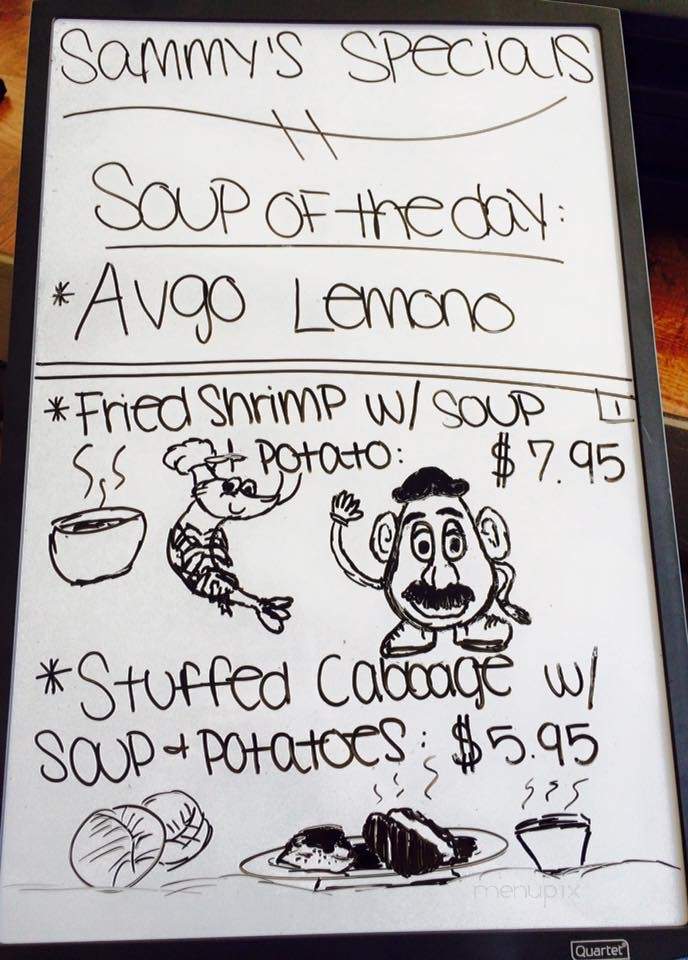 Sammy's Specials
Soup of the day:
*Avgo Lemono
*Fried Shrimp w/ Soup
+ Potato: $7.95
*Stuffed Cabbage w/
Soup + Potatoes: $5.95
menupix
Quartet